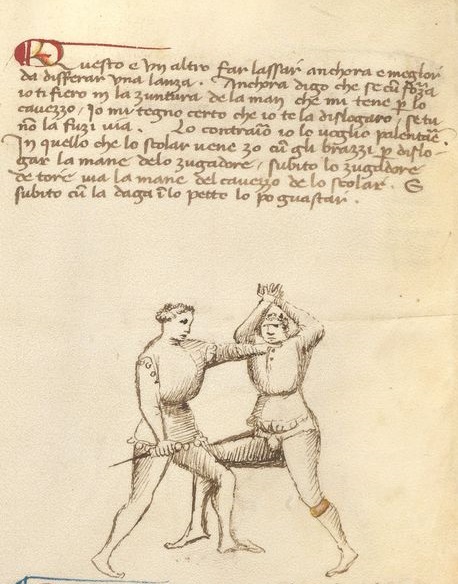 Questo e un altro far lassar anchora e meglior
da disferar una lanza. Anchora digo che se cũ forza
io ti fiero in la zuntura de la man che mi tene p lo
cavezzo, Io mi tegno certo che io te la dislogaro, se tu
nõ la fuzi via. Lo contrario io lo voglio palentare
In quello che lo scolar vene zo cũ gli brazzi p dislo-
gar la mane delo zugadore, subito lo zugadore
de tore via la mane del cavezzo de lo scolar. E
subito cũ la daga ĩ lo petto lo po guastar.